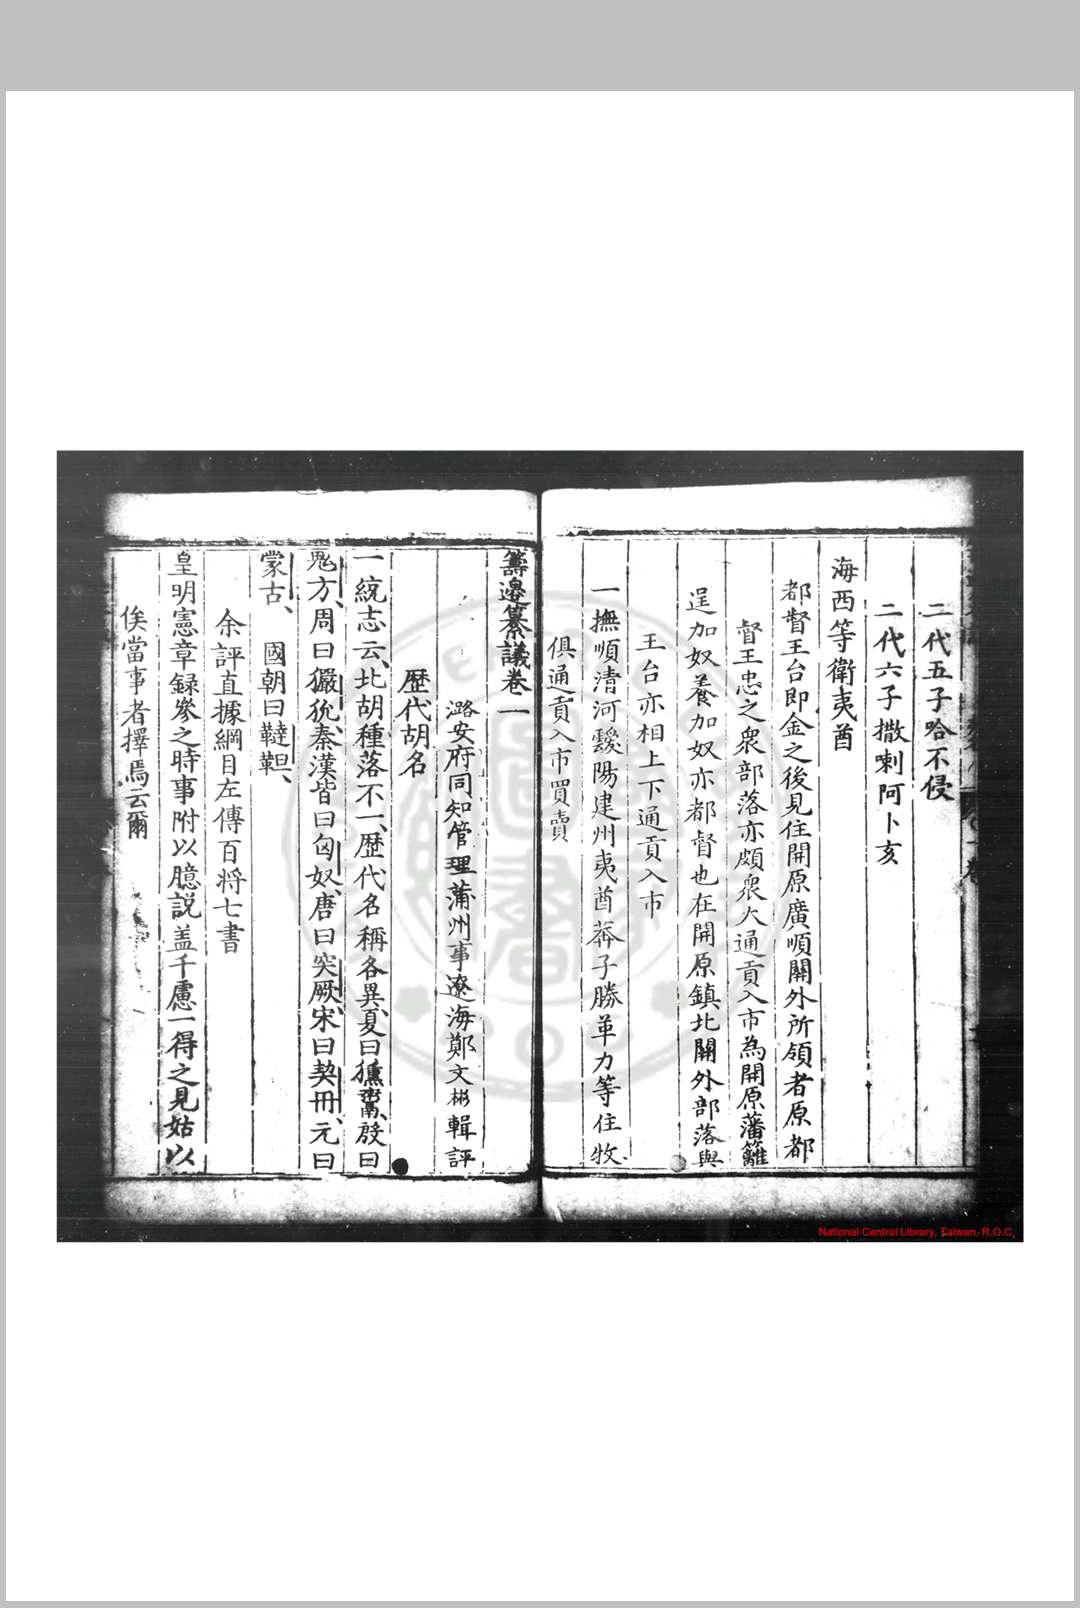 二代五子哈不侵
二代六子撒喇阿卜亥
海西等衛夷酋
都督王台即金之後見住開原廣順關外所領者原都
督王忠之衆部落亦頗衆大通貢入市為開原藩籬
逞加奴養加奴亦都督也在開原鎮北關外部落與
王台亦相上下通貢入市
一撫順清河靉陽建州夷酋莽子勝革力等住牧
俱通貢入市買賣
籌邊纂議卷一
潞安府同知管理蒲州事遼海鄭文彬輯評
歷代胡名
一統志云、北胡種落不一、歷代名稱各異、夏曰獯鬻、殷曰
鬼方、周曰玁狁、秦漢皆曰匈奴、唐曰突厥、宋曰契丹、元曰
蒙古、國朝曰韃靼、
余評直據綱目左傳百將七書
皇明憲章録叅之時事附以臆説盖千慮一得之見姑以
俟當事者擇焉云爾
National Central Library, Taiwan, R.O.C,